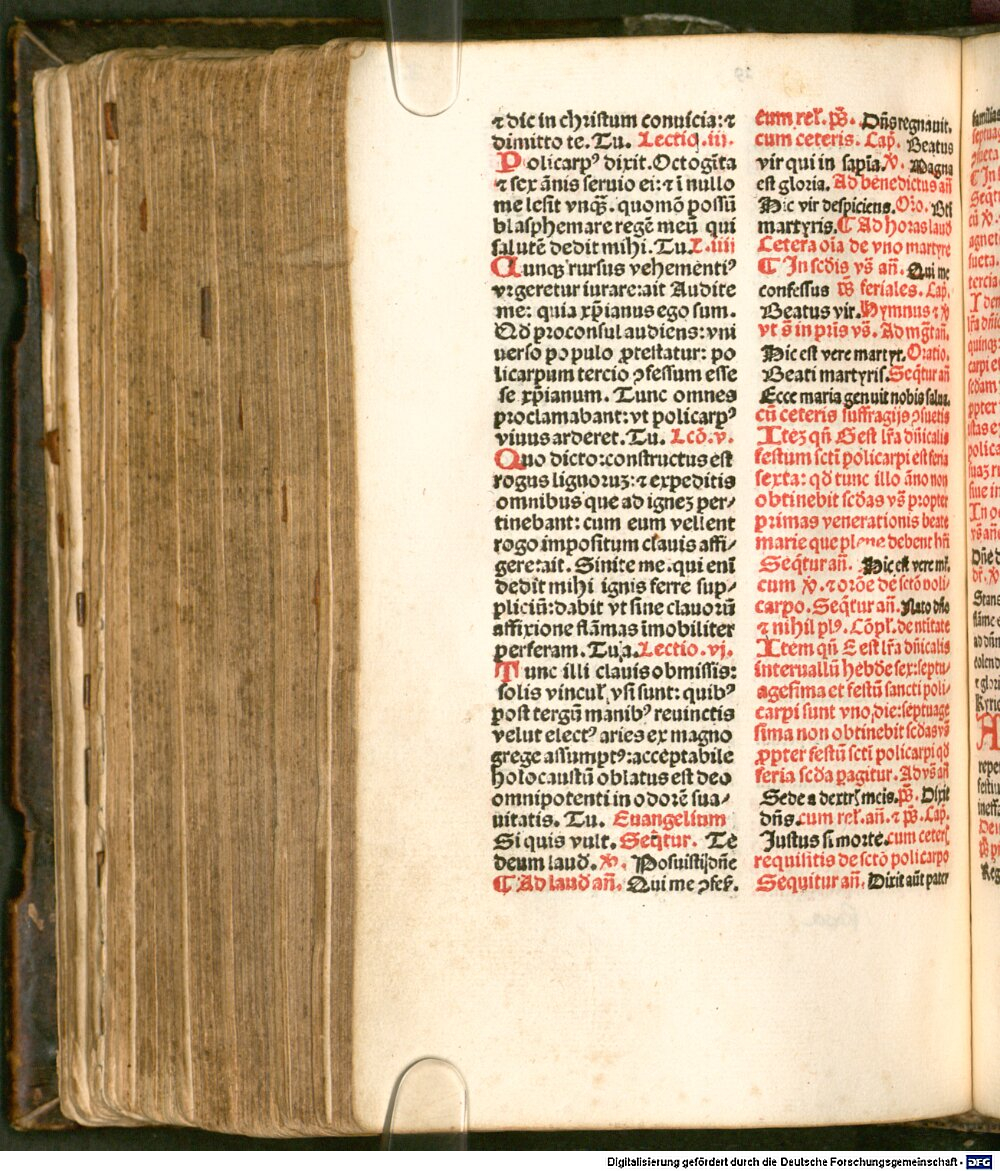 ⁊ dic in christum conuicia: ⁊
dimitto te. Tu. Lectio .iij.
Policarpꝰ dixit. Octogīta
⁊ sex ānis seruio ei: ⁊ ī nullo
me lesit vnqꝫ. quomō possū
blasphemare regē meū qui
salutē dedit mihi. Tu. L. iiij
Cunqꝫ rursus vehementiꝰ
vrgeretur iurare: ait Audite
me: quia xp̄ianus ego sum.
Qd̄ proconsul audiens: vni
uerso populo ꝓtestatur: po
licarpum tercio ꝯfessum esse
se xp̄ianum. Tunc omnes
proclamabant: vt policarpꝰ
viuus arderet. Tu. Lcō. v.
Quo dicto: constructus est
rogus lignoruꝫ: ⁊ expeditis
omnibus que ad igneꝫ per⸗
tinebant: cum eum vellent
rogo impositum clauis affi⸗
gere: ait. Sinite me. qui enī
dedit mihi ignis ferre sup⸗
pliciū: dabit vt sine clauorū
affixione flāmas īmobiliter
perferam. Tu a. Lectio. vj.
Tunc illi clauis obmissis:
solis vincul̛ vsi sunt: quibꝰ
post tergū manibꝰ reuinctis
velut electꝰ aries ex magno
grege assumptꝰ: acceptabile
holocaustū oblatus est deo
omnipotenti in odorē sua⸗
uitatis. Tu. Euangelium
Si quis vult. Seq̄tur. Te
deum laud̄. ℣. Posuisti dn̄e
¶ Ad laud̄ an̄. Qui me ꝯfes̛.
eum rel̛. ps̄. Dn̄s regnauit.
cum ceteris. Cap̄. Beatus
vir qui in sapīa. ℣. Magna
est gloria. Ad benedictus an̄
Hic vir despiciens. Or̄o. Bti
martyris. ¶ Ad horas laud̄
Cetera oīa de vno martyre
¶ In scd̄is vs̄ an̄. Qui me
confessus ps̄ feriales. Cap̄.
Beatus vir. Hymnus ⁊ ℣
vt s̄ in prīs vs̄. Ad mḡt an̄.
Hic est vere martyr. Oratio.
Beati martyris. Seq̄tur an̄
Ecce maria genuit nobis salua.
cū ceteris suffragijs ꝯsuetis
Iteꝫ qn̄ G est lr̄a dn̄icalis
festum sctī policarpi est feria
sexta: qd̄ tunc illo āno non
obtinebit scd̄as vs̄ propter
primas venerationis beate
marie que plene debent hr̄i
Seq̄tur an̄. Hic est vere mr̄.
cum ℣. ⁊ or̄oe de sctō poli⸗
carpo. Seq̄tur an̄. Nato dn̄o
⁊ nihil plꝰ. Cōpl̛. de ntitate
Item qn̄ E est lr̄a dn̄icalis
interuallū hebd̄e sex: septu⸗
agesima et festū sancti poli⸗
carpi sunt vno die: septuage
sima non obtinebit scd̄as vs̄
ꝓpter festū sctī policarpi qd̄
feria scd̄a pagitur. Ad vs̄ an̄
Sede a dextr̛ meis. ps̄. Dixit
dn̄s. cum rel̛. an̄. ⁊ ps̄. Cap̄.
Justus si morte. cum ceter̛
requisitis de sctō policarpo
Sequitur an̄. Dixit aūt pater
Digitalisierung gefördert durch die Deutsche Forschungsgemeinschaft - DFG